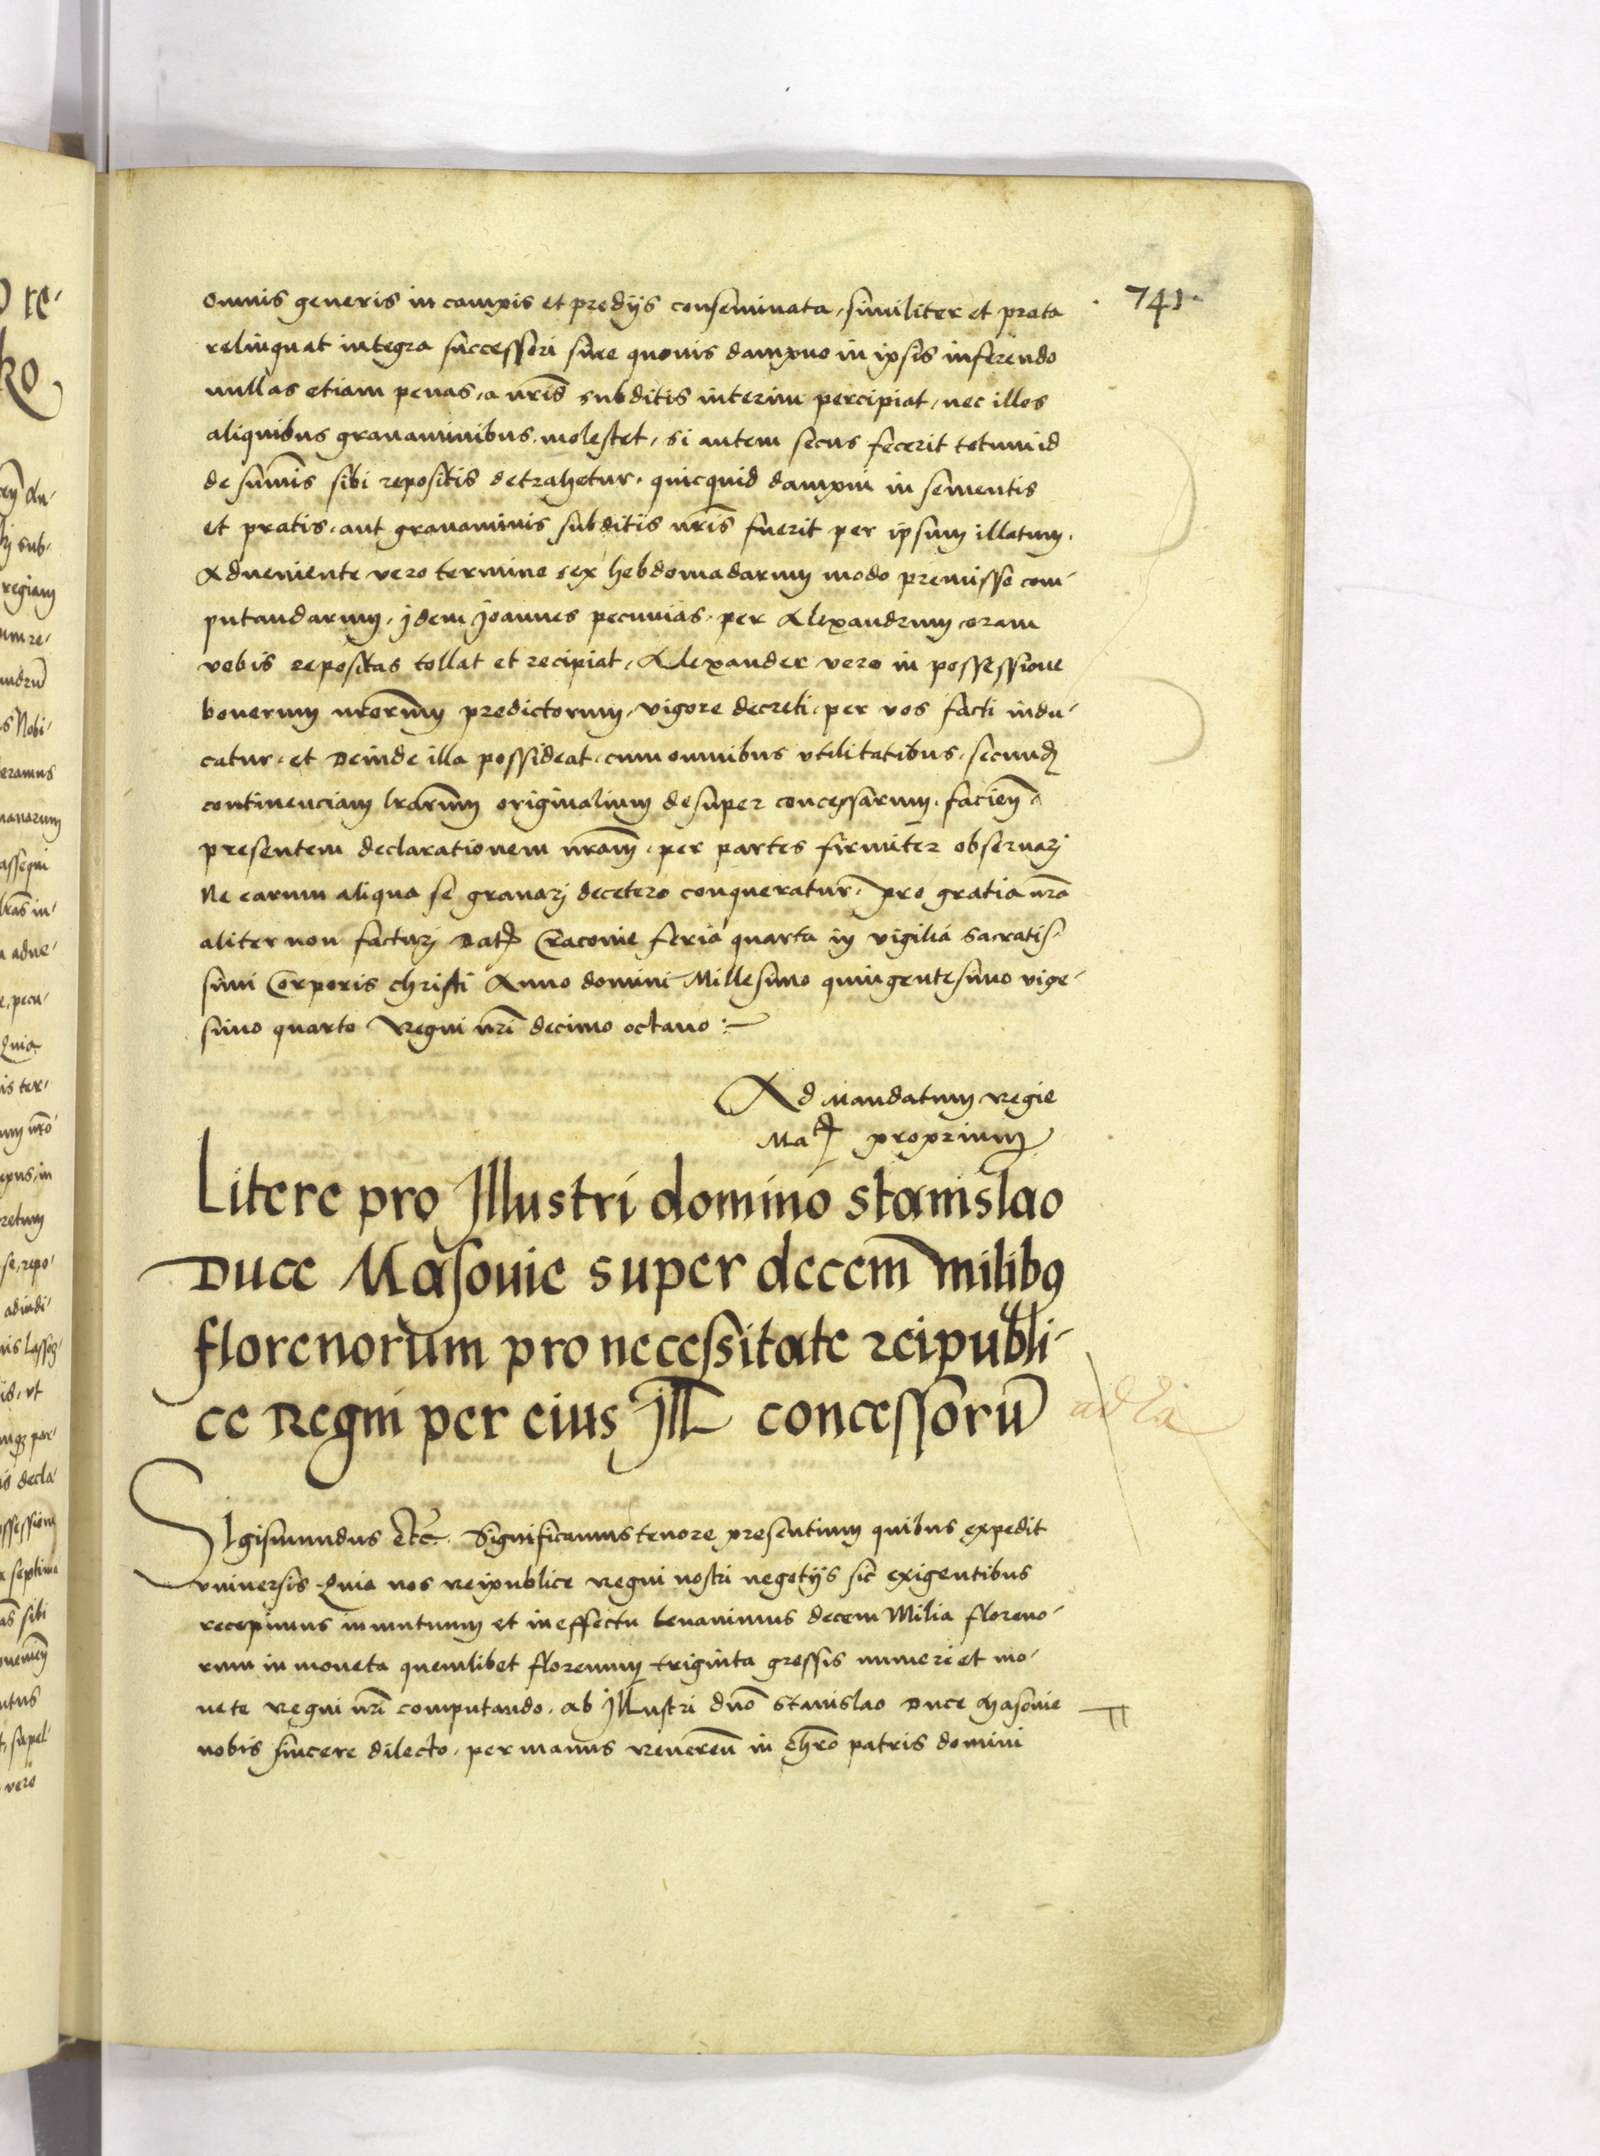 741
omnis generis in campis et predijs conseminata, similiter et prata
relinquat integra successori sine quouis dampno in ipsis inferendo
nullas etiam penas, a nrīs subditis interim percipiat, nec illos
aliquibus grauaminibus molestet, si autem secus fecerit totum id
de sum̄is sibi repositis detrahetur, quicquid dampni in sementis
et pratis, aut grauaminis subditis nrīs fuerit per ipsum illatum.
Adueniente vero termino sex hebdomadarum modo premisso com-
putandarum, jdem Joannes pecunias, per Alexandrum coram
vobis repositas tollat et recipiat, Alexander vero in possessione
bonorum nrorūm predictorum, vigore decreti, per vos facti indu-
catur, et Deinde illa possideat, cum omnibus vtilitatibus, secund
continenciam lrārum originalium desuper concessarum, facien̄
presentem declarationem nrām, per partes firmiter obseruarj
Ne earum aliqua se grauarj decetero conqueratur, pro gratia nrā
aliter non facturj Dat Cracouie feria quarta in vigilia sacratis-
simi Corporis christi Anno domini Millesimo quingentesimo vige-
simo quarto Regni nrī decimo octauo :-
Ad Mandatum regie
Mat proprium
Litere pro Jllustri domino stanislao
Duce Masouie super decem̄ milibus
florenorum pro necessitate reipubli-
ce Regni per eius Jll concessorū
ad
Sigismundus etc̄. Significamus tenore presentium quibus expedit
vniuersis Quia nos reipublice regni nostri negotijs sic exigentibus
recepimus in mutuum et in effectu leuauimus decem Milia floreno-
rum in moneta quemlibet florenum triginta grossis numeri et mo-
nete regni nrī computando, ab Jllustri dn̄o Stanislao Duce Masouie
nobis sincere dilecto, per manus Reueren̄ in chrō patris domini